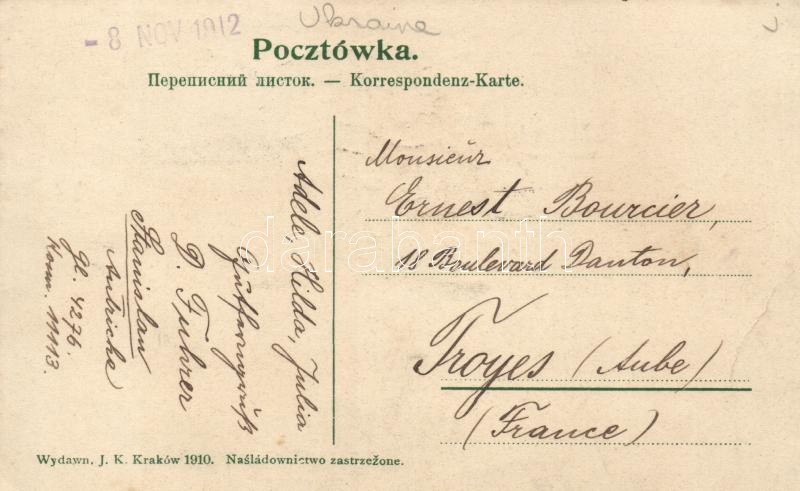 - 8 NOV 1912
Ukraine
Pocztówka.
Переписний листок. — Korrespondenz-Karte.
Monsieur
Ernest Bourcier,
18 Boulevard Danton,
Troyes (Aube)
(France)
Adele, Hilda, Julia
D. Fuhrer
Stanislau
Autriche
Gl. 4276.
Kom. 11113.
Wydawn. J. K. Kraków 1910. Naśladownictwo zastrzeżone.
darabanth.com